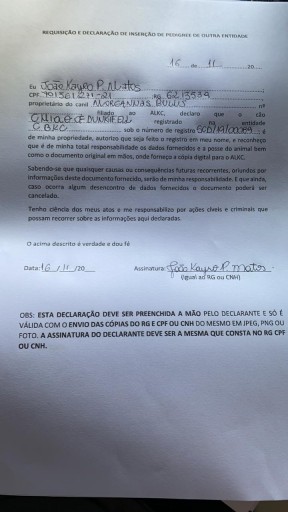 REQUISIÇÃO E DECLARAÇÃO DE INSERÇÃO DE PEDIGREE DE OUTRA ENTIDADE
16 de 11 20
Eu João Kayro P. Matos
CPF RG 6213939
proprietário do canil MORGANNAS BULLS nº
filiado ao ALKC, declaro que o cão
registrado na entidade
CBKC sob o número de registro é
de minha propriedade, autorizo que seja feito o registro em meu nome, e reconheço
que é de minha total responsabilidade os dados fornecidos e a posse do animal bem
como o documento original em mãos, onde forneço a cópia digital para o ALKC.
Sabendo-se que quaisquer causas ou consequências futuras recorrentes, oriundos por
informações deste documento fornecido, serão de minha responsabilidade. E que ainda,
caso ocorra algum desencontro de dados fornecidos o documento poderá ser
cancelado.
Tenho ciência dos meus atos e me responsabilizo por ações cíveis e criminais que
possam recorrer sobre as informações aqui declaradas.
O acima descrito é verdade e dou fé
Data: 16 / 11 /20 Assinatura: João Kayro P. Matos
(Igual ao RG ou CNH)
OBS: ESTA DECLARAÇÃO DEVE SER PREENCHIDA A MÃO PELO DECLARANTE E SÓ É
VÁLIDA COM O ENVIO DAS CÓPIAS DO RG E CPF OU CNH DO MESMO EM JPEG, PNG OU
FOTO. A ASSINATURA DO DECLARANTE DEVE SER A MESMA QUE CONSTA NO RG CPF
OU CNH.